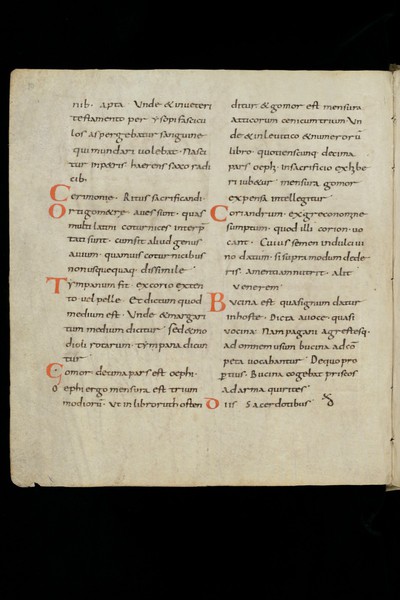 nib· apta · Unde & inueteri
testamento per ysopi fascicu
los aspergebatur sanguine
qui mundari uolebat · Nasci
tur in p&ris haerens saxo radi
cib·
Cerimonię · Ritus sacrificandi·
Ortigom&rę · aues sunt · quas
multi latini coturnices interp
tati sunt · cum sit aliud genus
auium · quamuis coturnicibus
non usquequaq· dissimile
Tympanum fit · ex corio exten
to uel pelle · Et dictum quod
medium est · Unde & margari
tum medium dicitur · sed & mo
dioli rotarum · tympana dicun
tur
Gomor decima pars est oephi·
oephi ergo mensura est trium
modiorū · Ut in libro ruth osten
ditur & gomor est mensura
atticorum cenicum trium Un
de & in leuitico & numerorū
libro · quotienscunq· decima
pars oephi · in sacrificio exhibe
ri iub&ur · mensura gomor
expensa intellegitur
Coriandrum · ex greco nomine
sumptum · quod illi corion · uo
cant · Cuius semen in dulci ui
no datum · si supra modum dede
ris · amentiam nutrit · alit
uenerem·
Bucina est qua signum datur
in hoste · Dicta a uoce · quasi
uocina · Nam pagani agrestesq·
ad omnem usum bucina ad cō
peta uocabantur · De quo pro
pertius · Bucina cogebat priscos
ad arma quirites
Diis · Sacerdotibus